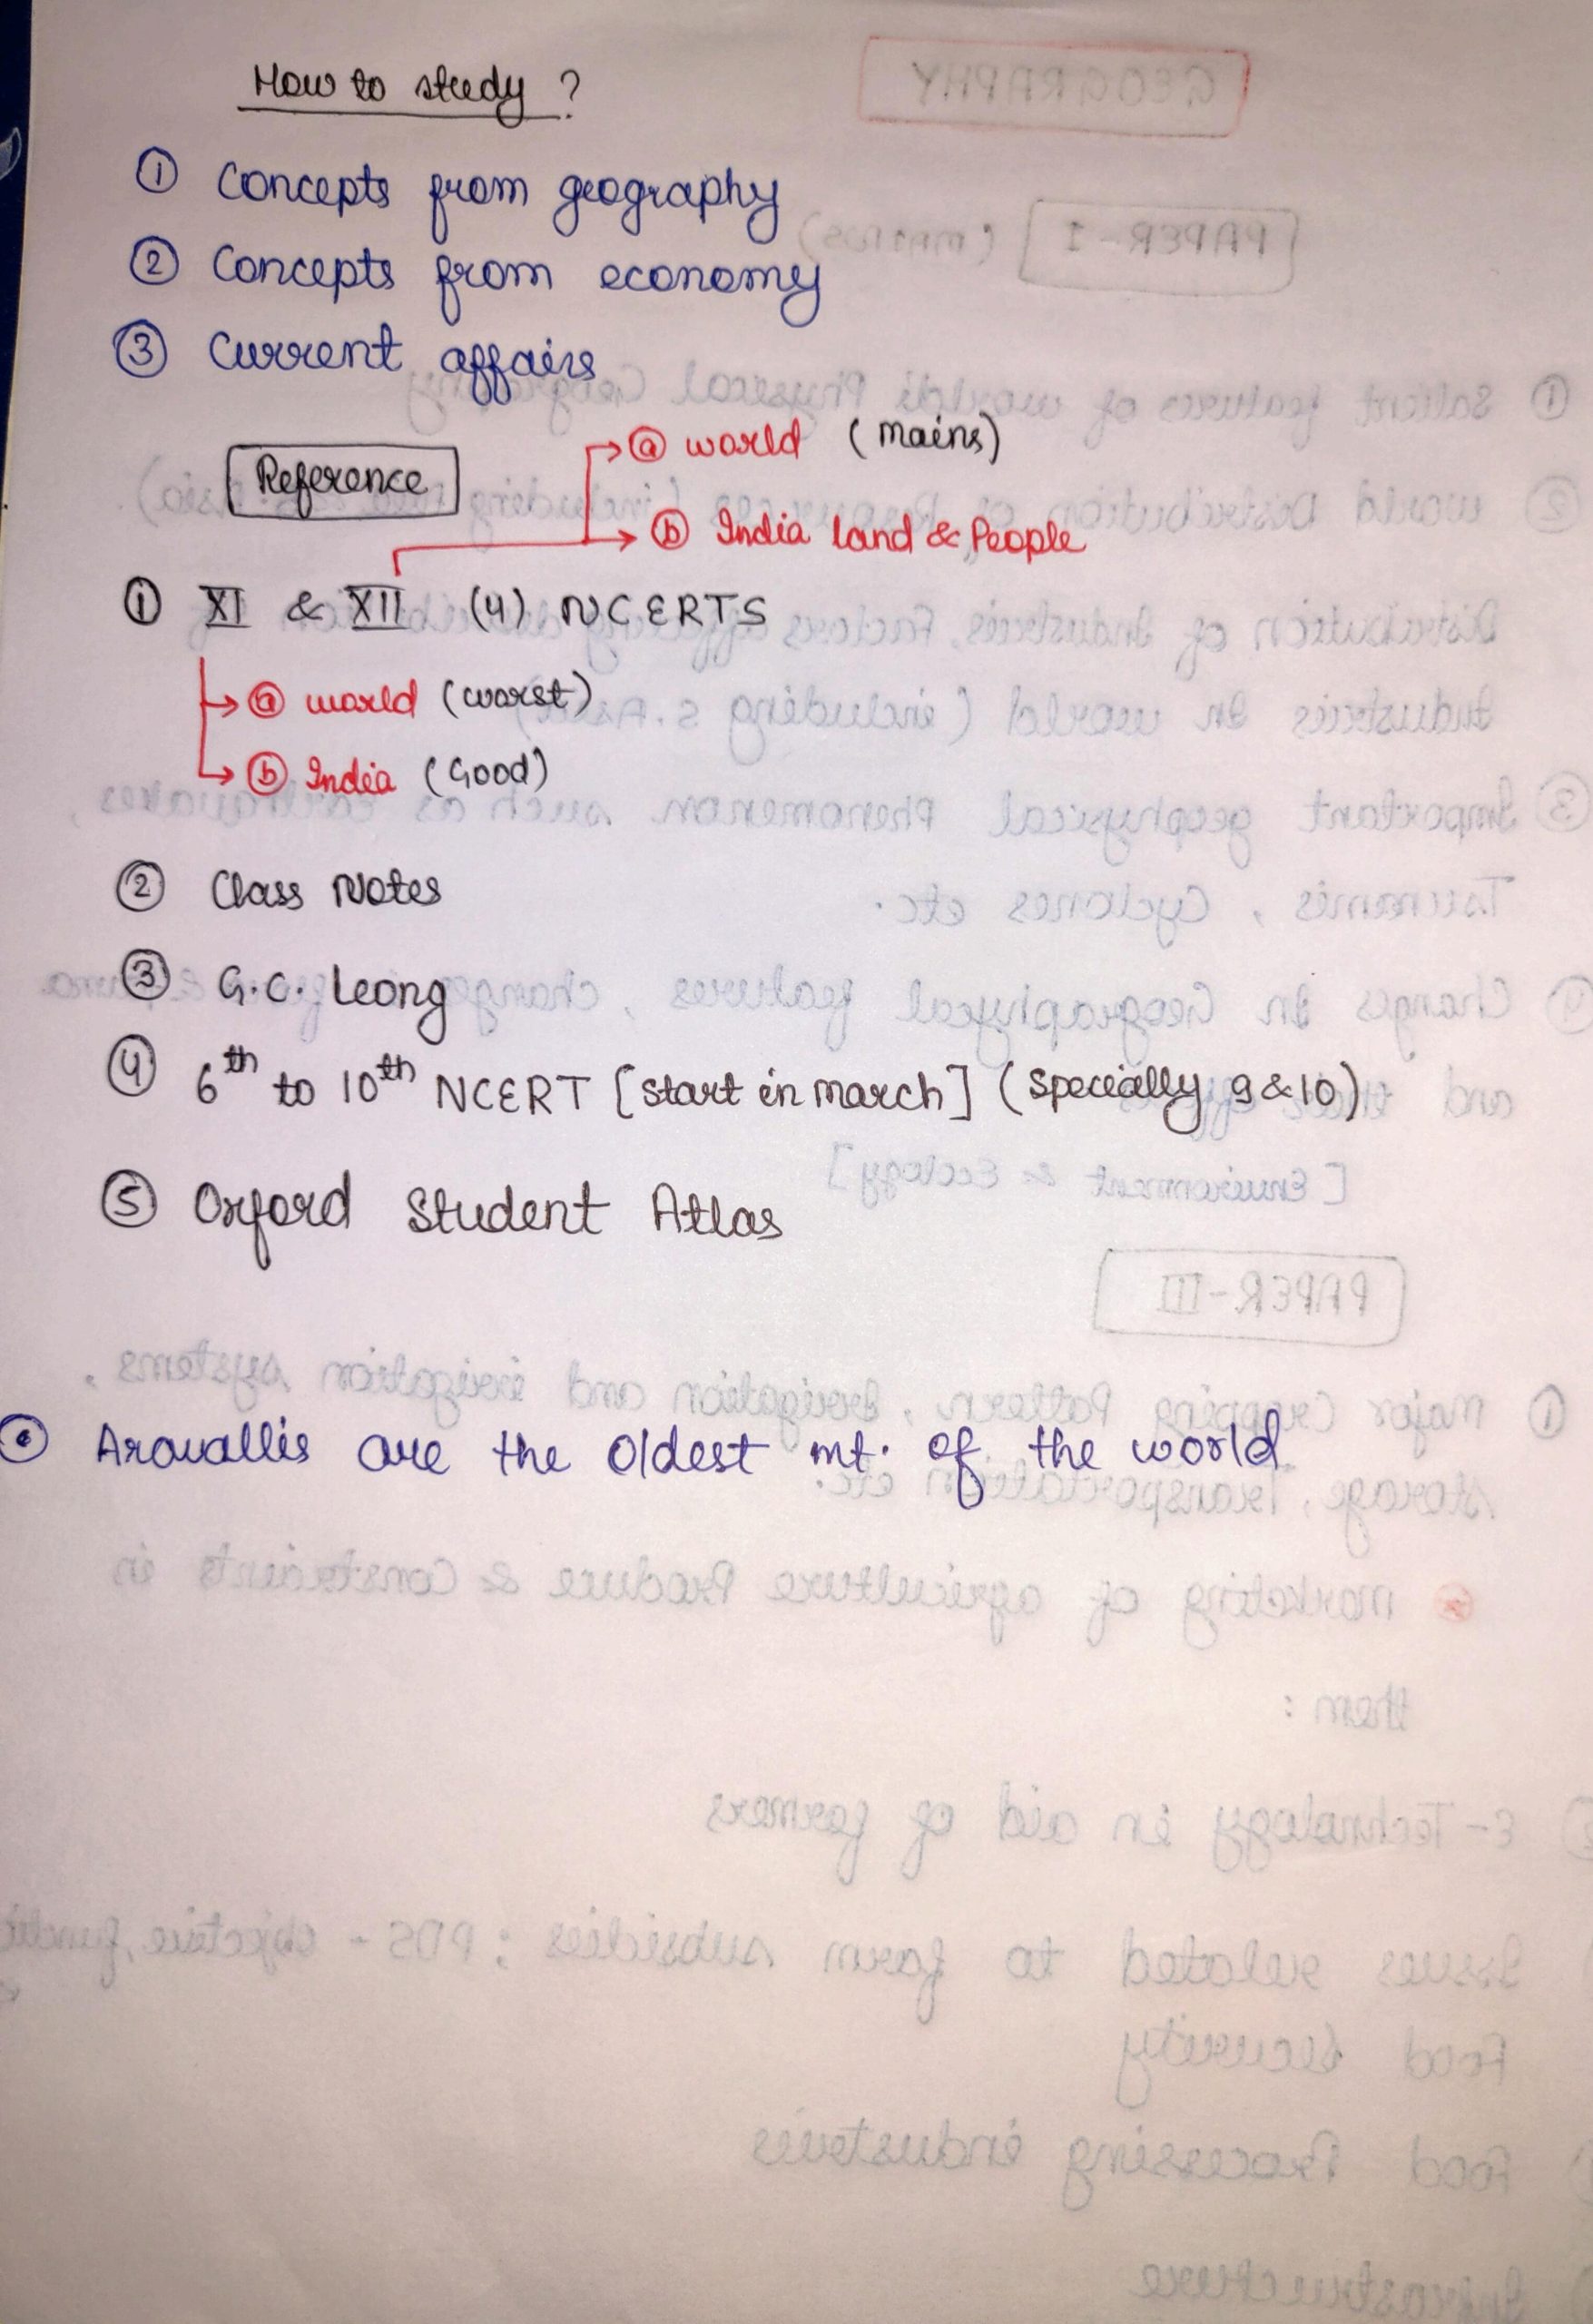 How to study ?
① Concepts from geography
② Concepts from economy
③ Current affairs
Reference
→ ⓐ world (mains)
→ ⓑ India land & People
① XI & XII (4) NCERTS
→ ⓐ world (worst)
→ ⓑ India (Good)
② Class Notes
③ G.C. Leong
④ 6th to 10th NCERT [start in march] (specially 9 & 10)
⑤ Oxford Student Atlas
Aravallis are the oldest mt. of the world